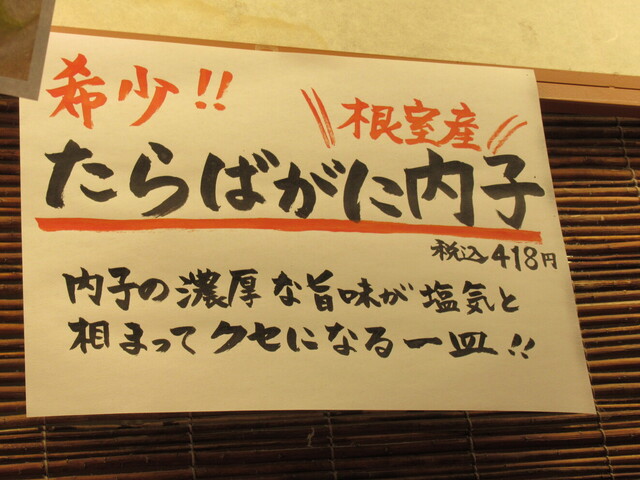 希少!!
根室産
たらばがに内子
税込418円
内子の濃厚な旨味が塩気と
相まってクセになる一皿!!